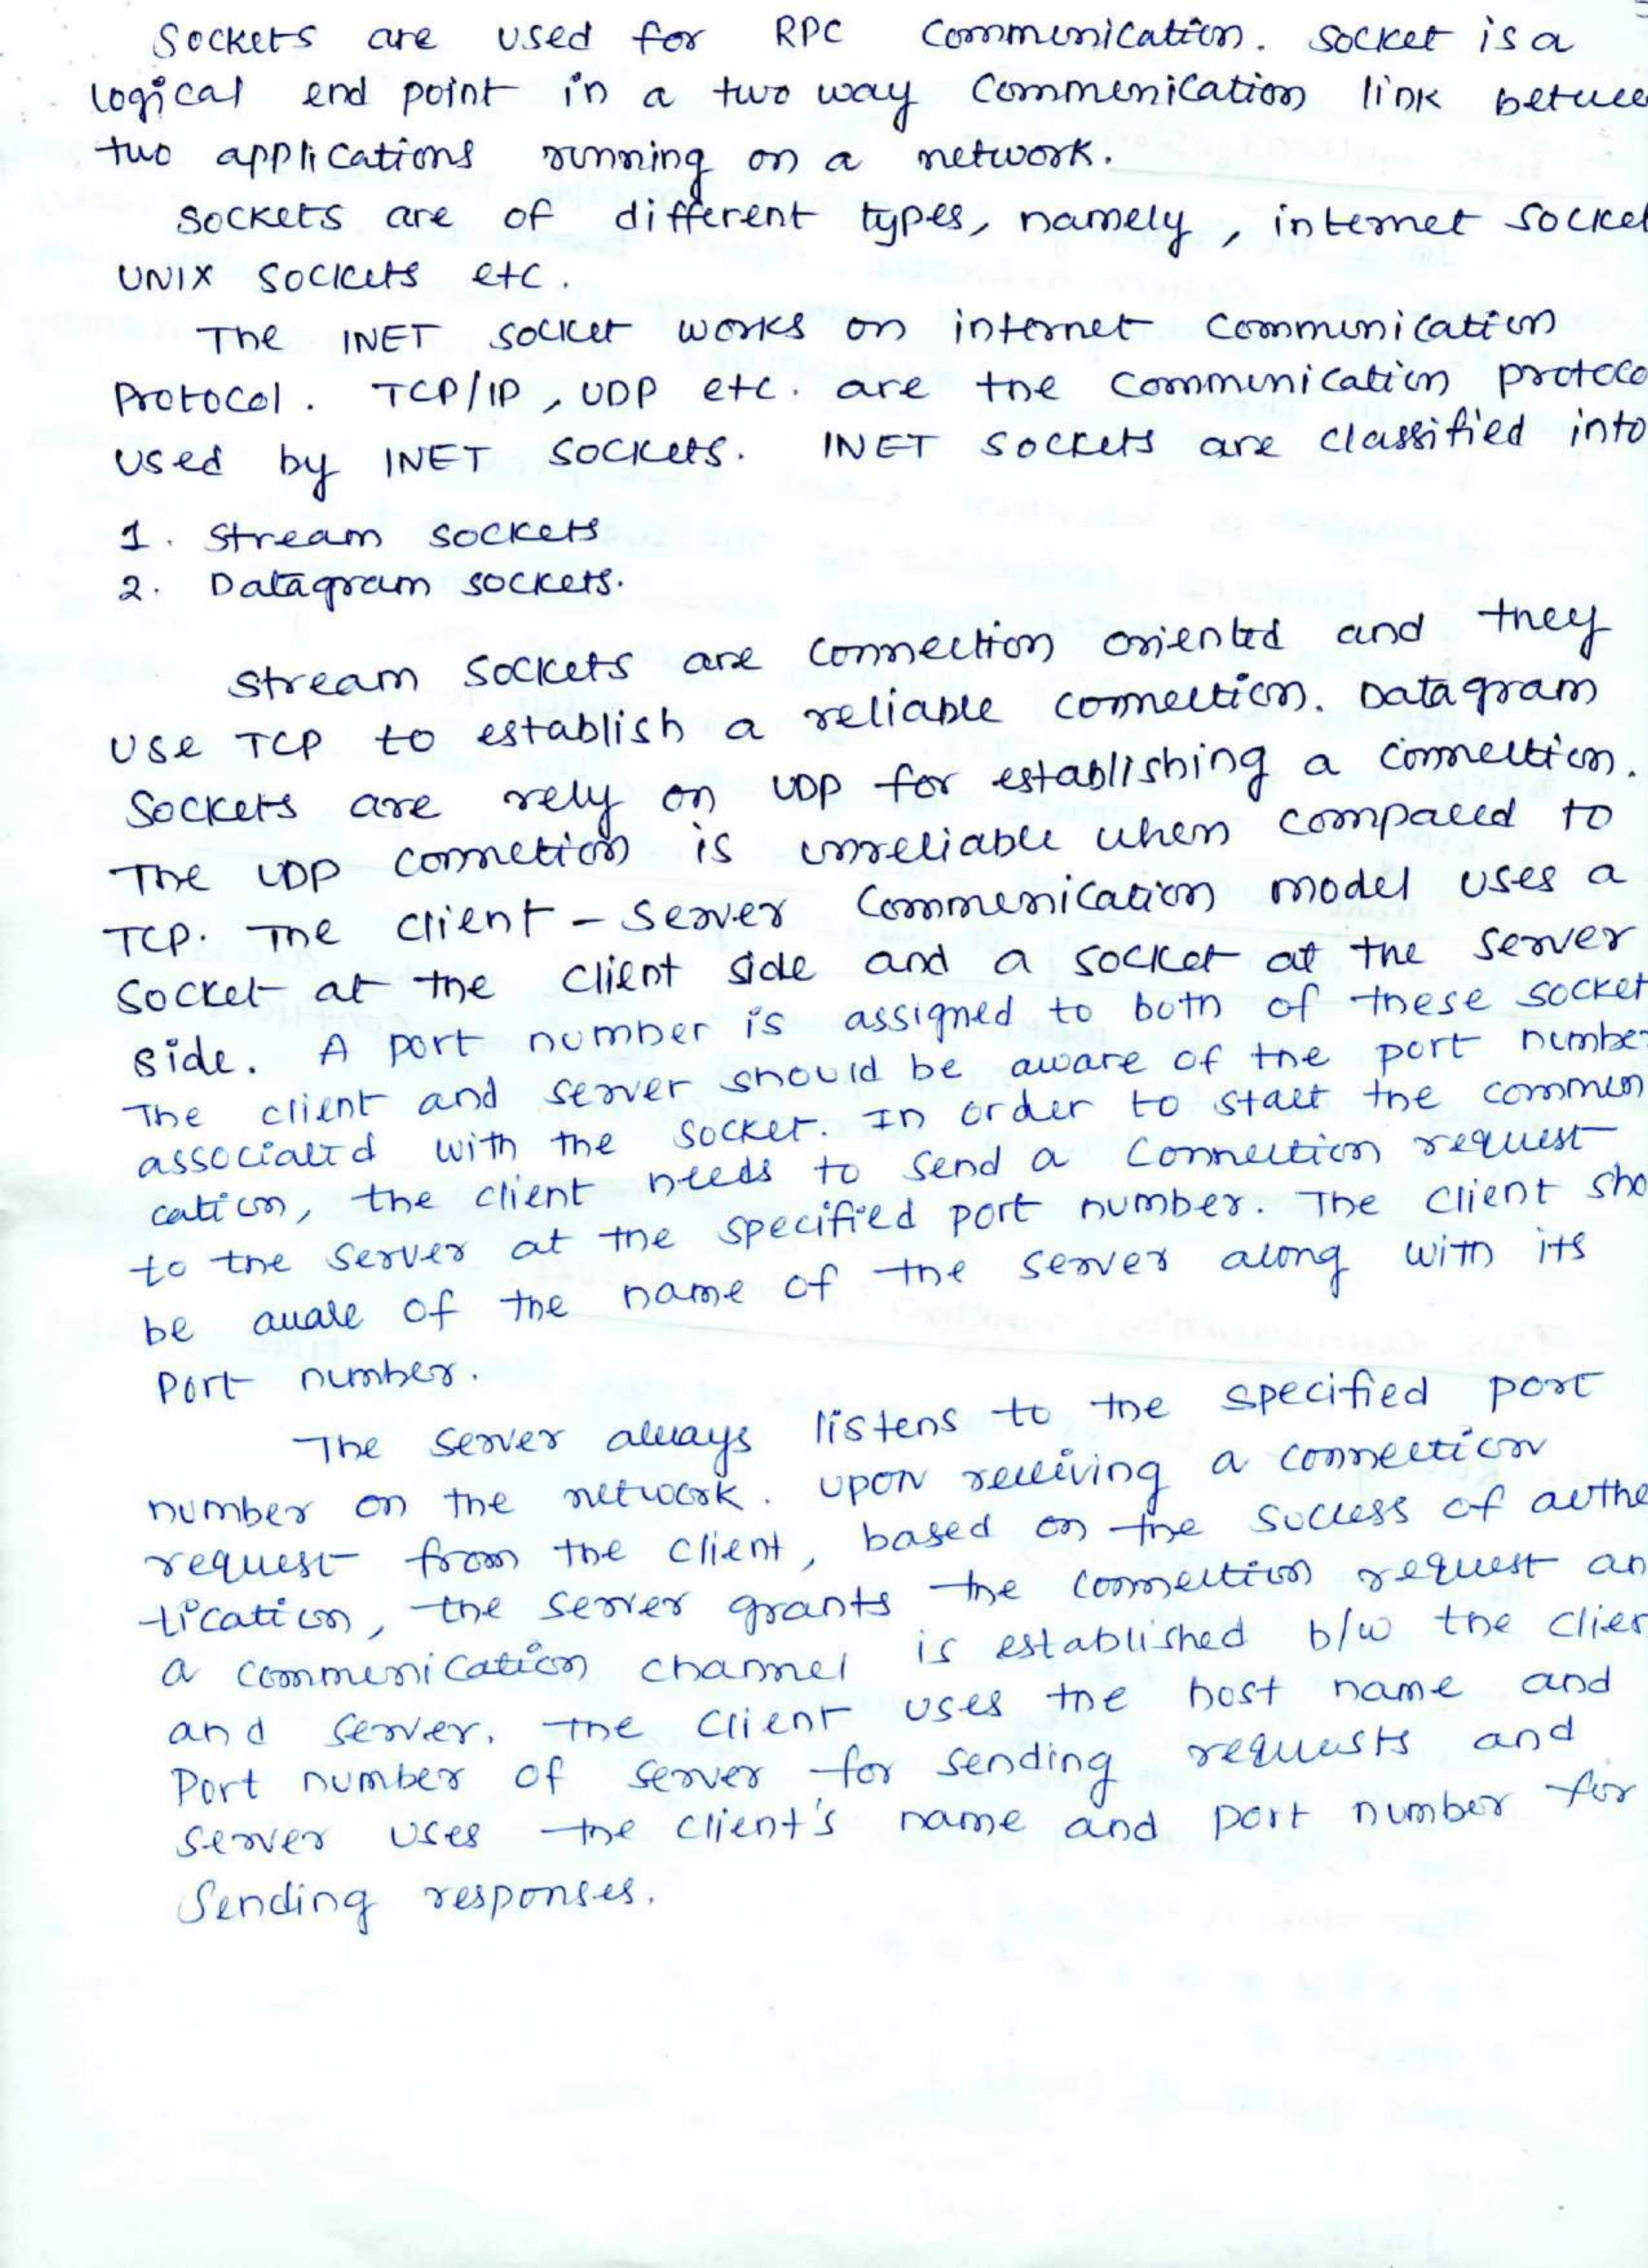 Sockets are used for RPC Communication. Socket is a
logical end point in a two way Communication link betwee
two applications running on a network.
Sockets are of different types, namely, internet Socket
UNIX Sockets etc.
The INET Socket works on internet Communication
Protocol. TCP/IP, UDP etc. are the Communication protoco
Used by INET Sockets. INET Sockets are classified into
1. Stream Sockets
2. Datagram sockets.
Stream Sockets are Connection oriented and they
Use TCP to establish a reliable connection. Datagram
Sockets are rely on UDP for establishing a connection.
The UDP connetion is unreliable when compared to
TCP. The client-server Communication model uses a
Socket at the client side and a socket at the server
side. A port number is assigned to both of these socket
The client and server should be aware of the port number
associated with the socket. In order to start the commun
cation, the client needs to send a Connection request
to the server at the specified port number. The client sho
be aware of the name of the server along with its
Port number.
The server always listens to the specified port
number on the network. Upon receiving a connection
request from the client, based on the success of authe
tication, the server grants the connection request an
a communication channel is established b/w the clien
and server. The client uses the host name and
Port number of server for sending requests and
server uses the client's name and port number for
Sending responses.